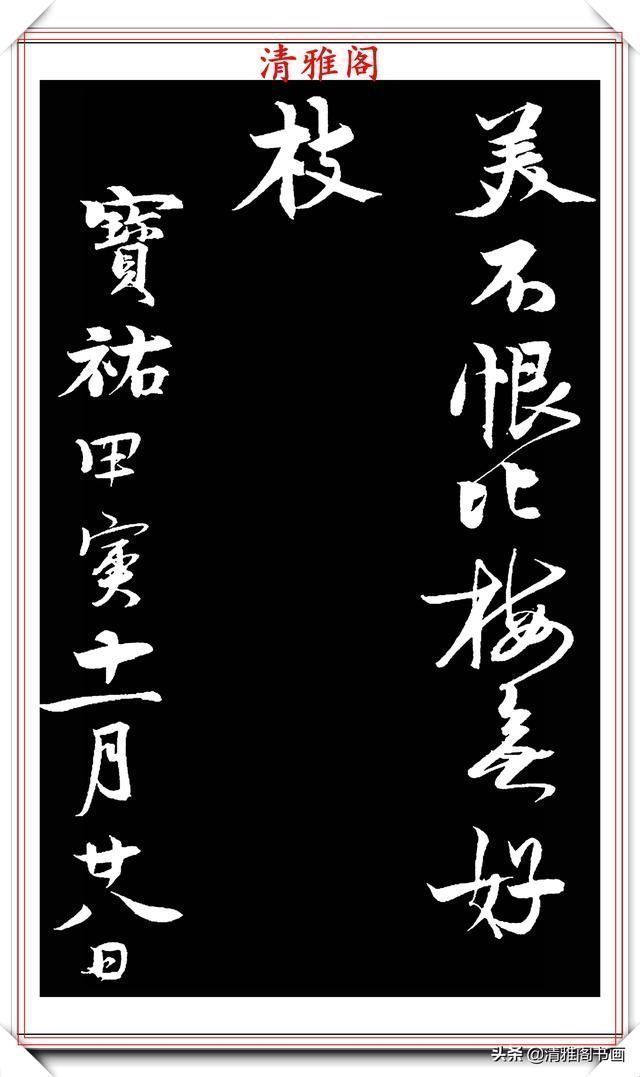 清雅阁
美不恨比梅無好
枝
寶祐甲寅十一月廿八日
头条@清雅阁书画